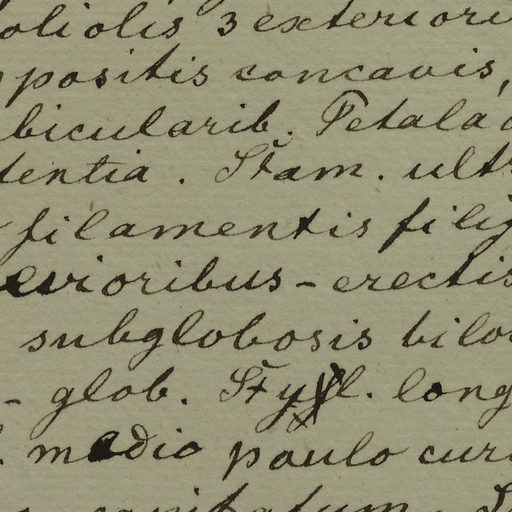 oliolis 3 exteriori
positis concavis,
bicularib. Petala
dentia. Stam. ult
filamentis fili
erioribus - erectis
subglobosis bilo
- glob. Styl. long
medio paulo cur
capitatum.